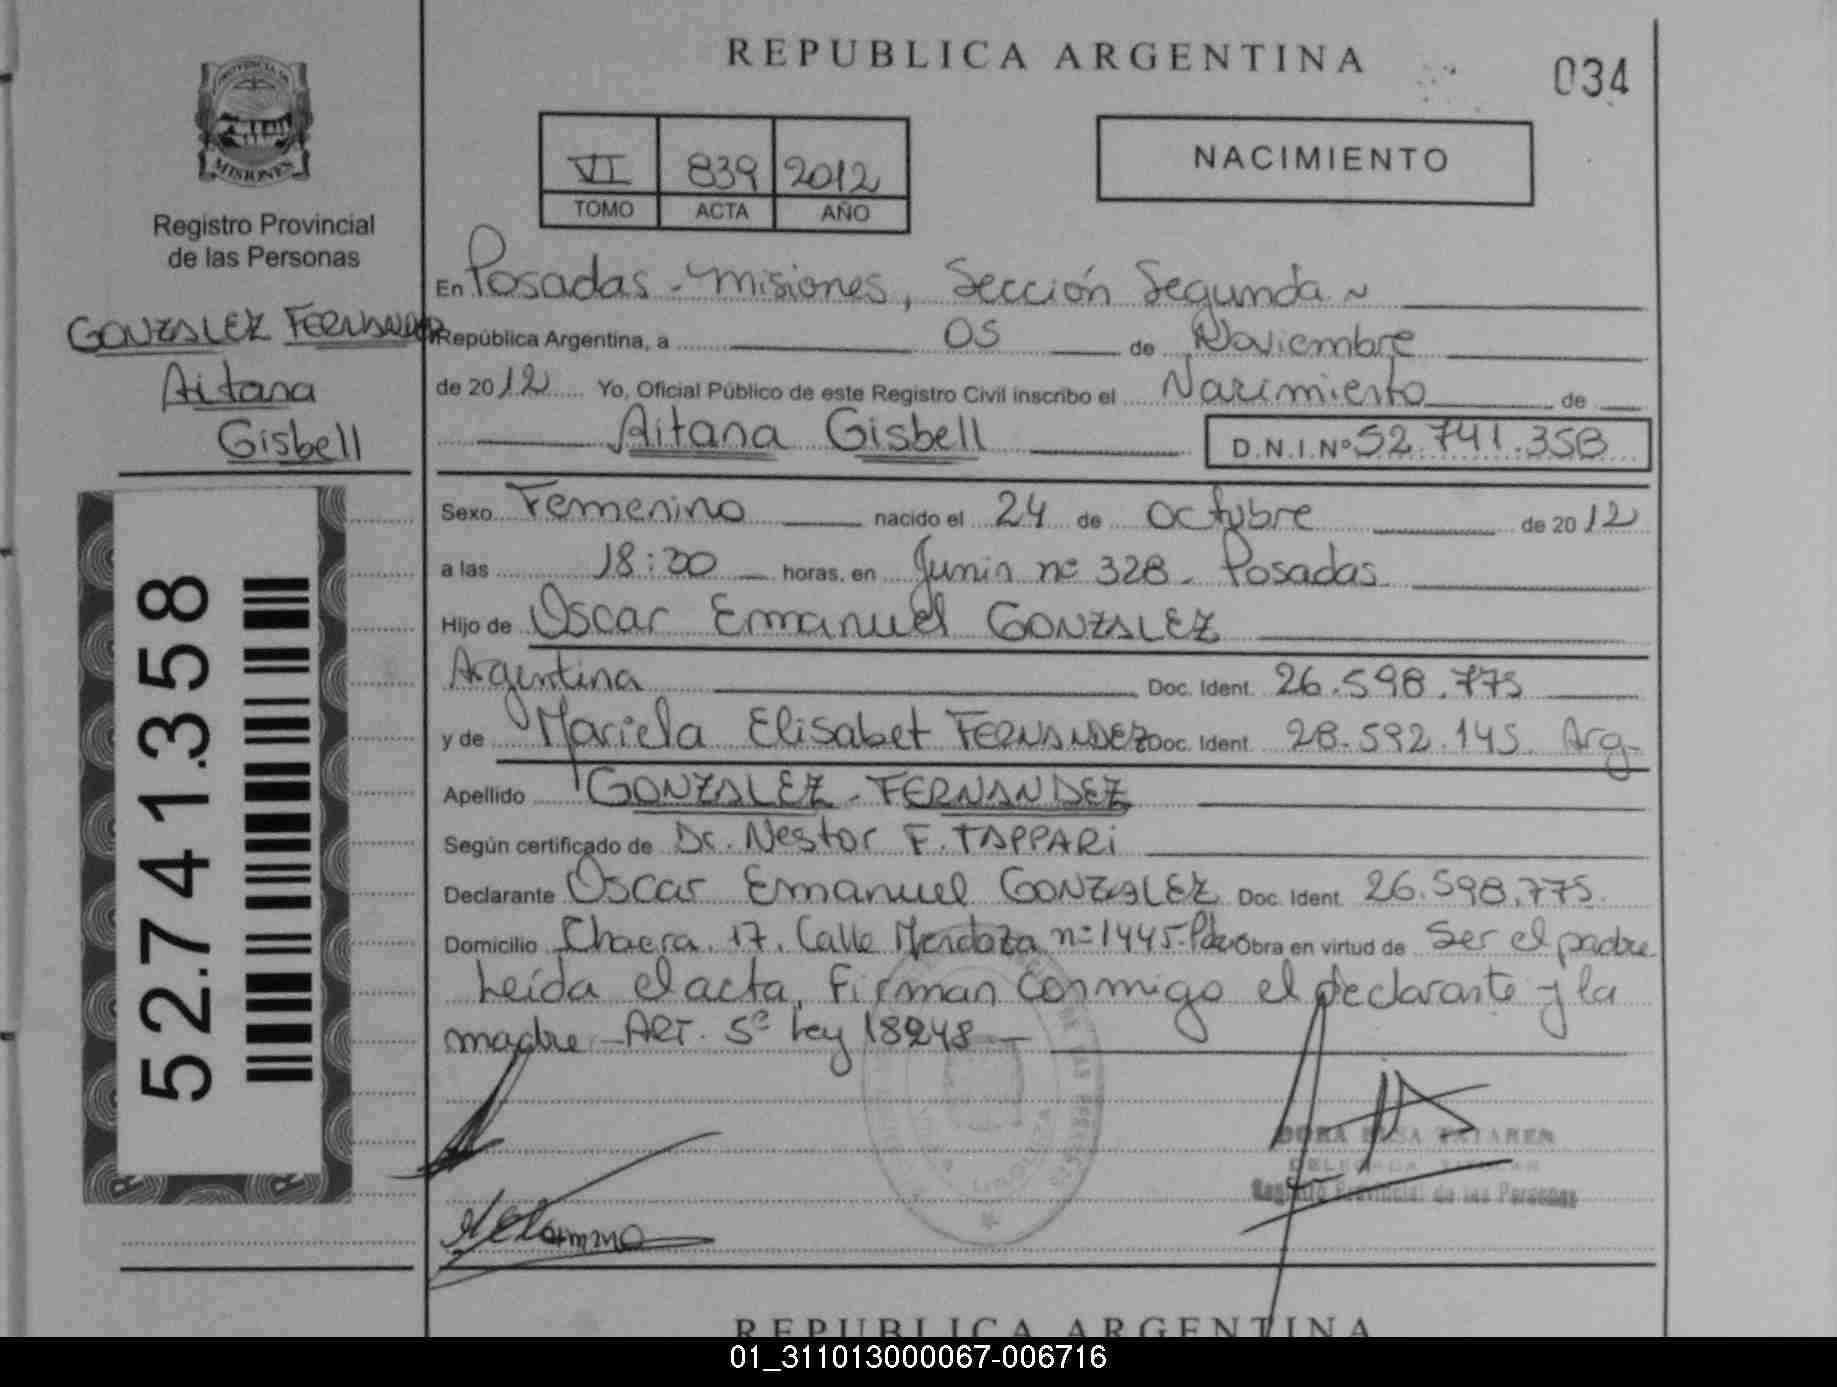 REPUBLICA ARGENTINA
034
PROVINCIA DE
MISIONES
Registro Provincial
de las Personas
GONZALEZ FERNANDEZ
Aitana
Gisbell
52.741.358
VI 839 2012
TOMO ACTA AÑO
NACIMIENTO
En Posadas - Misiones, Sección Segunda
República Argentina, a 05 de Noviembre
de 2012 Yo, Oficial Público de este Registro Civil inscribo el Nacimiento de
Aitana Gisbell D.N.I.Nº 52.741.358
Sexo Femenino nacido el 24 de Octubre de 2012
a las 18:00 horas, en Junin nº 328 - Posadas
Hijo de Oscar Emanuel GONZALEZ
Argentina Doc. Ident. 26.598.775
y de Mariela Elisabet FERNANDEZ Doc. Ident. 28.592.145. Arg-
Apellido GONZALEZ - FERNANDEZ
Según certificado de Dr. Nestor F. TAPPARi
Declarante Oscar Emanuel GONZALEZ Doc. Ident. 26.598.775.
Domicilio Chacra. 17. Calle Mendoza nº 1445- Pdas Obra en virtud de Ser el padre
Leída el acta, Firman Conmigo el declarante y la
madre - ART. 5º Ley 18248 -
DORA TATAREN
DELEGADA TITULAR
Registro Provincial de las Personas
REPUBLICA ARGENTINA
01_311013000067-006716